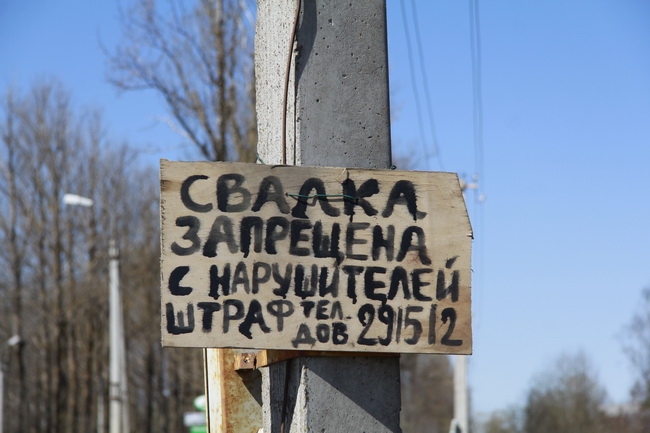 СВАЛКА
ЗАПРЕЩЕНА
С НАРУШИТЕЛЕЙ
ШТРАФ ТЕЛ.
ДОВ. 291512